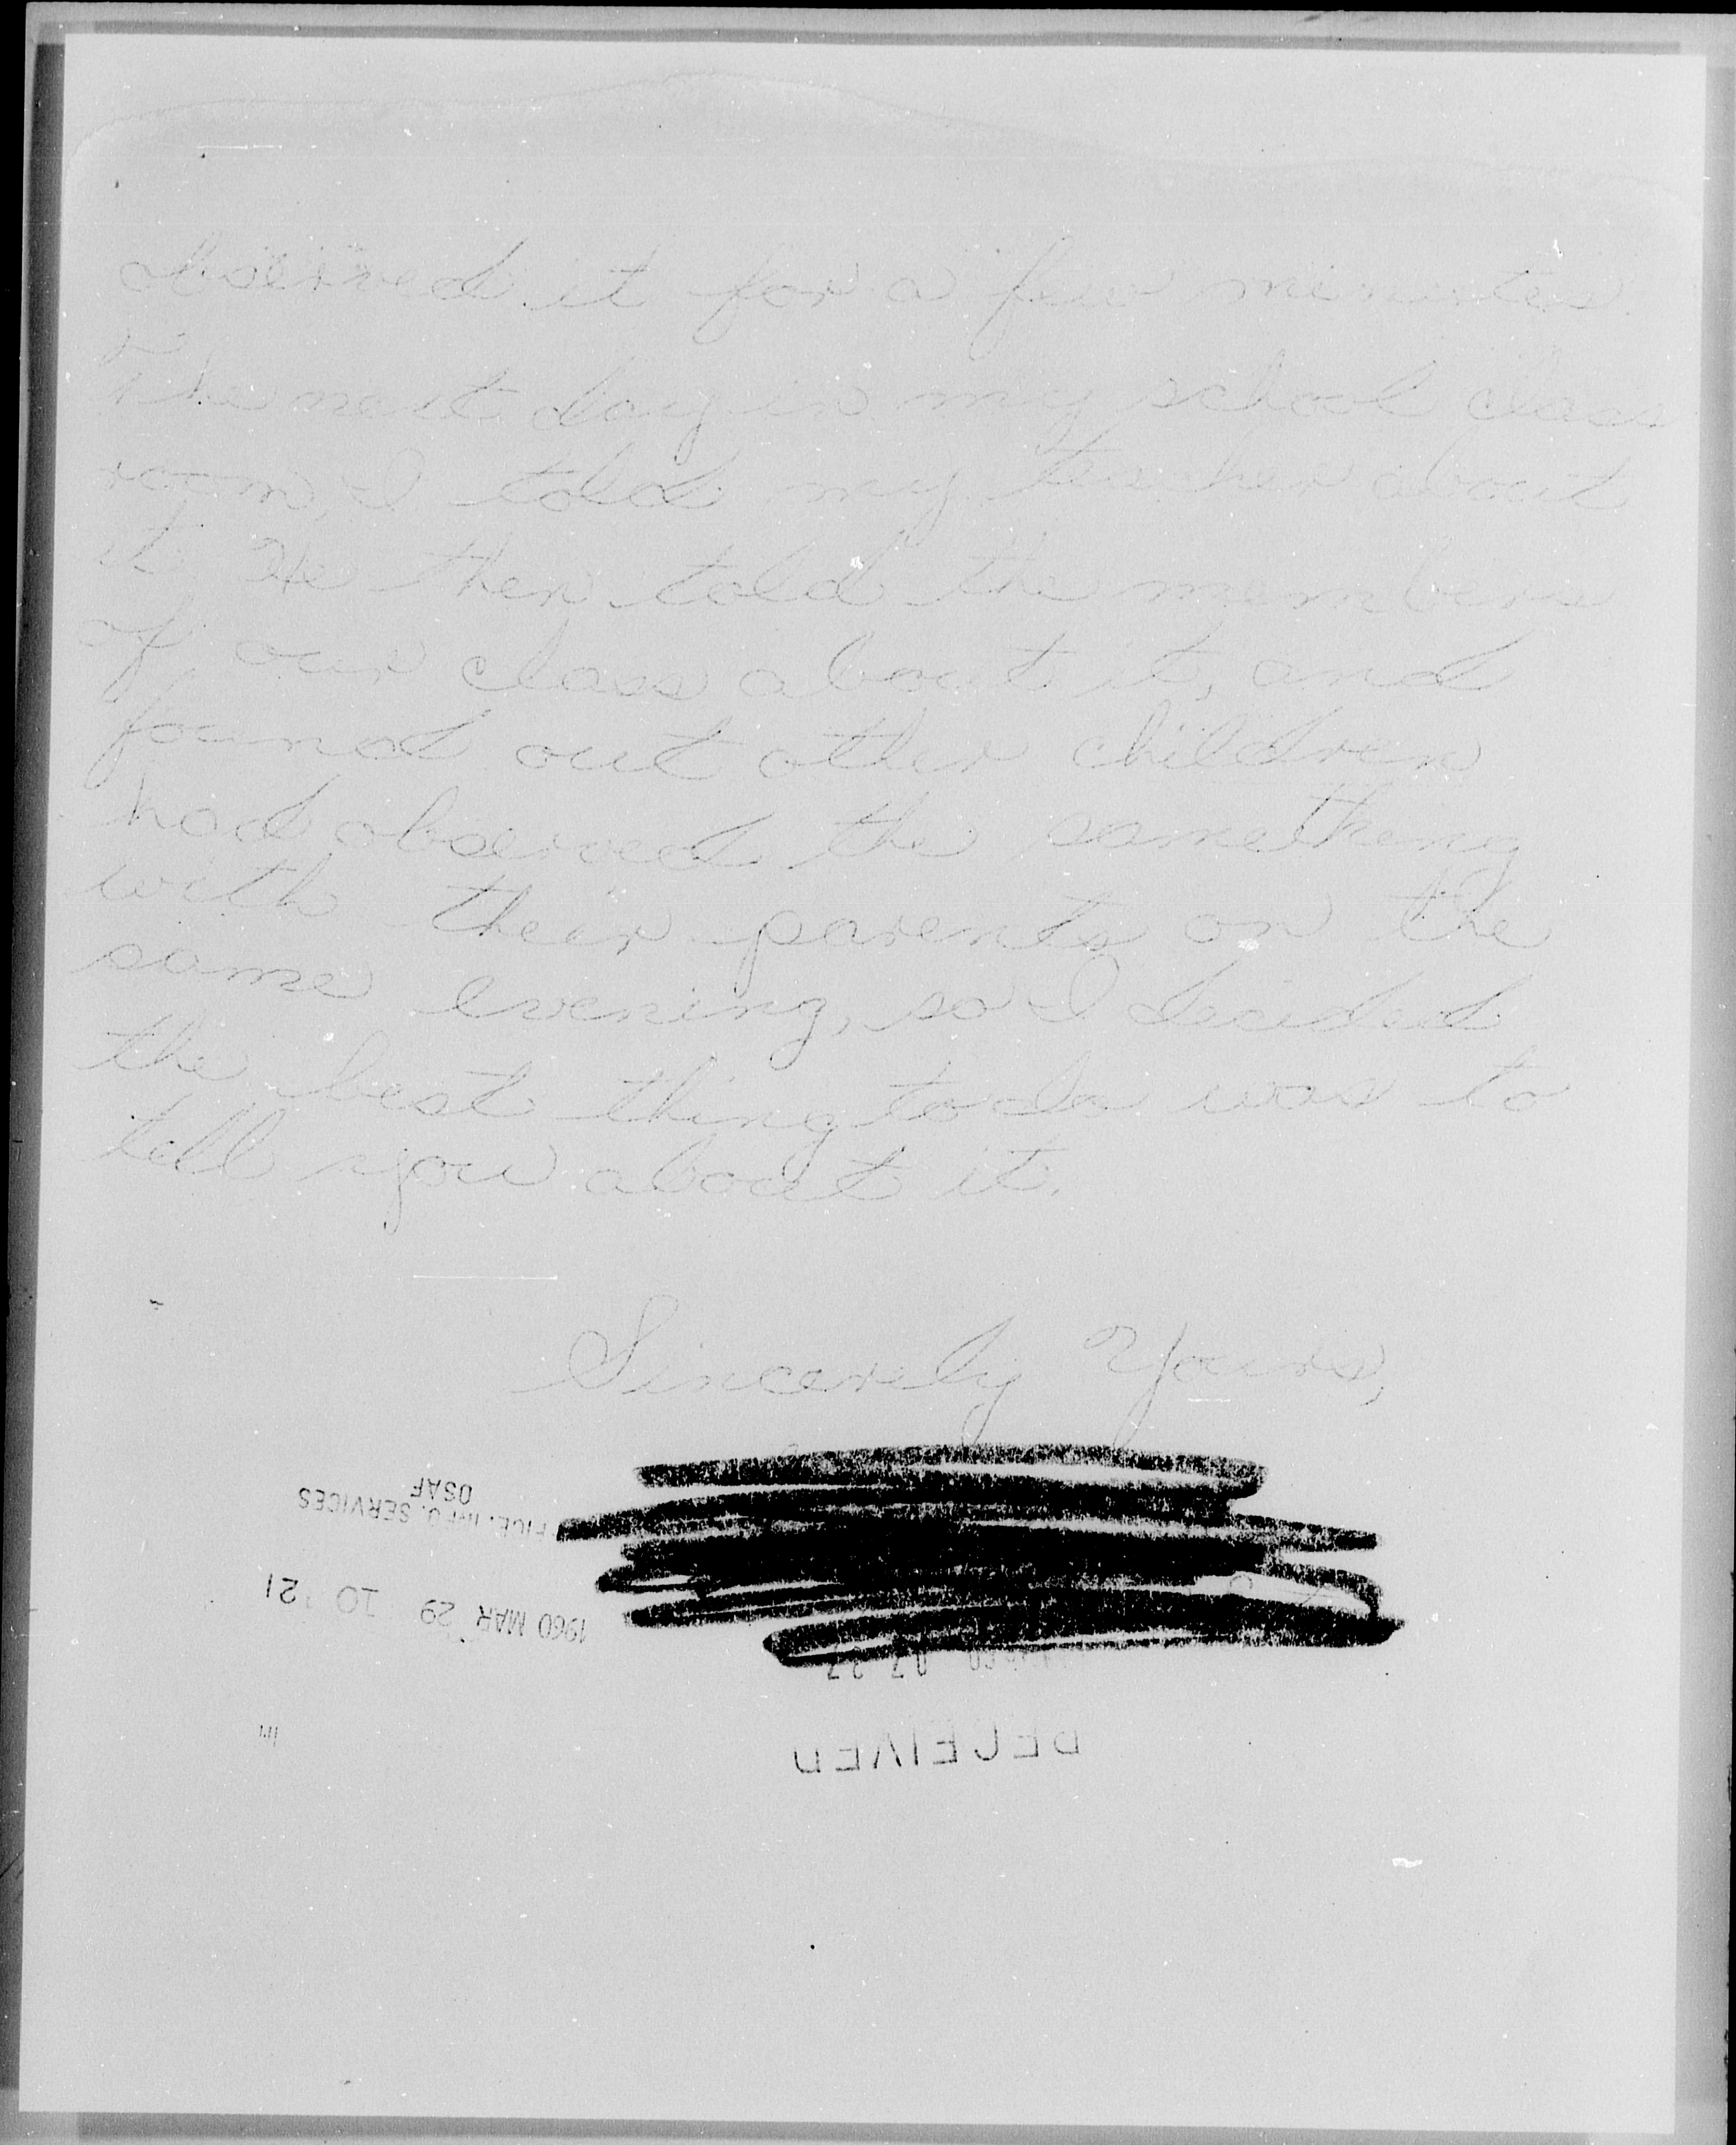 observed it for a few minutes.
The next day in my school class
room, I told my teacher about
it. He then told the members
of our class about it, and
found out other children
had observed the samething
with their parents on the
same evening, so I decided
the best thing to do was to
tell you about it.
Sincerely Yours,
INFO. SERVICES
OSAF
1960 MAR 29 10 21
07 37
RECEIVED